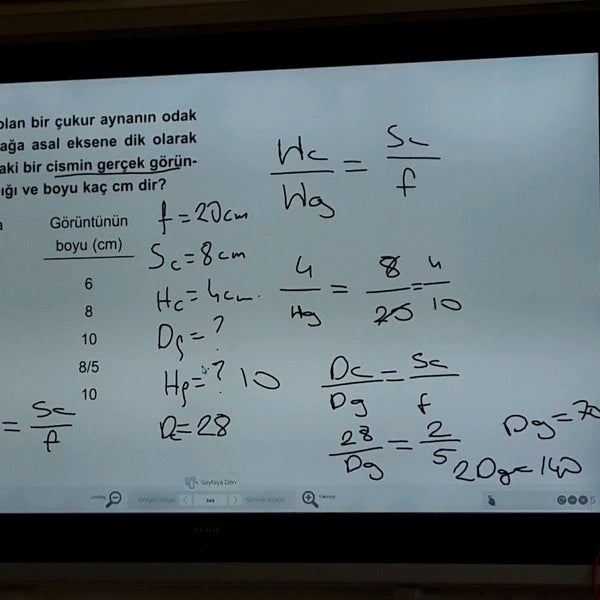 olan bir çukur aynanın odak
ağa asal eksene dik olarak
aki bir cismin gerçek görün-
ığı ve boyu kaç cm dir?
a
Görüntünün
boyu (cm)
6
8
10
8/5
10
= Sc/f
f = 20cm
Sc = 8cm
Hc = 4cm.
Dg = ?
Hg = ? 10
Dc = 28
Hc/Hg = Sc/f
4/Hg = 8/20 = 4/10
Dc/Dg = Sc/f
28/Dg = 2/5
2Dg = 140
Dg = 70
Sayfaya Dön
Önceki Bölge
Sonraki Bölge